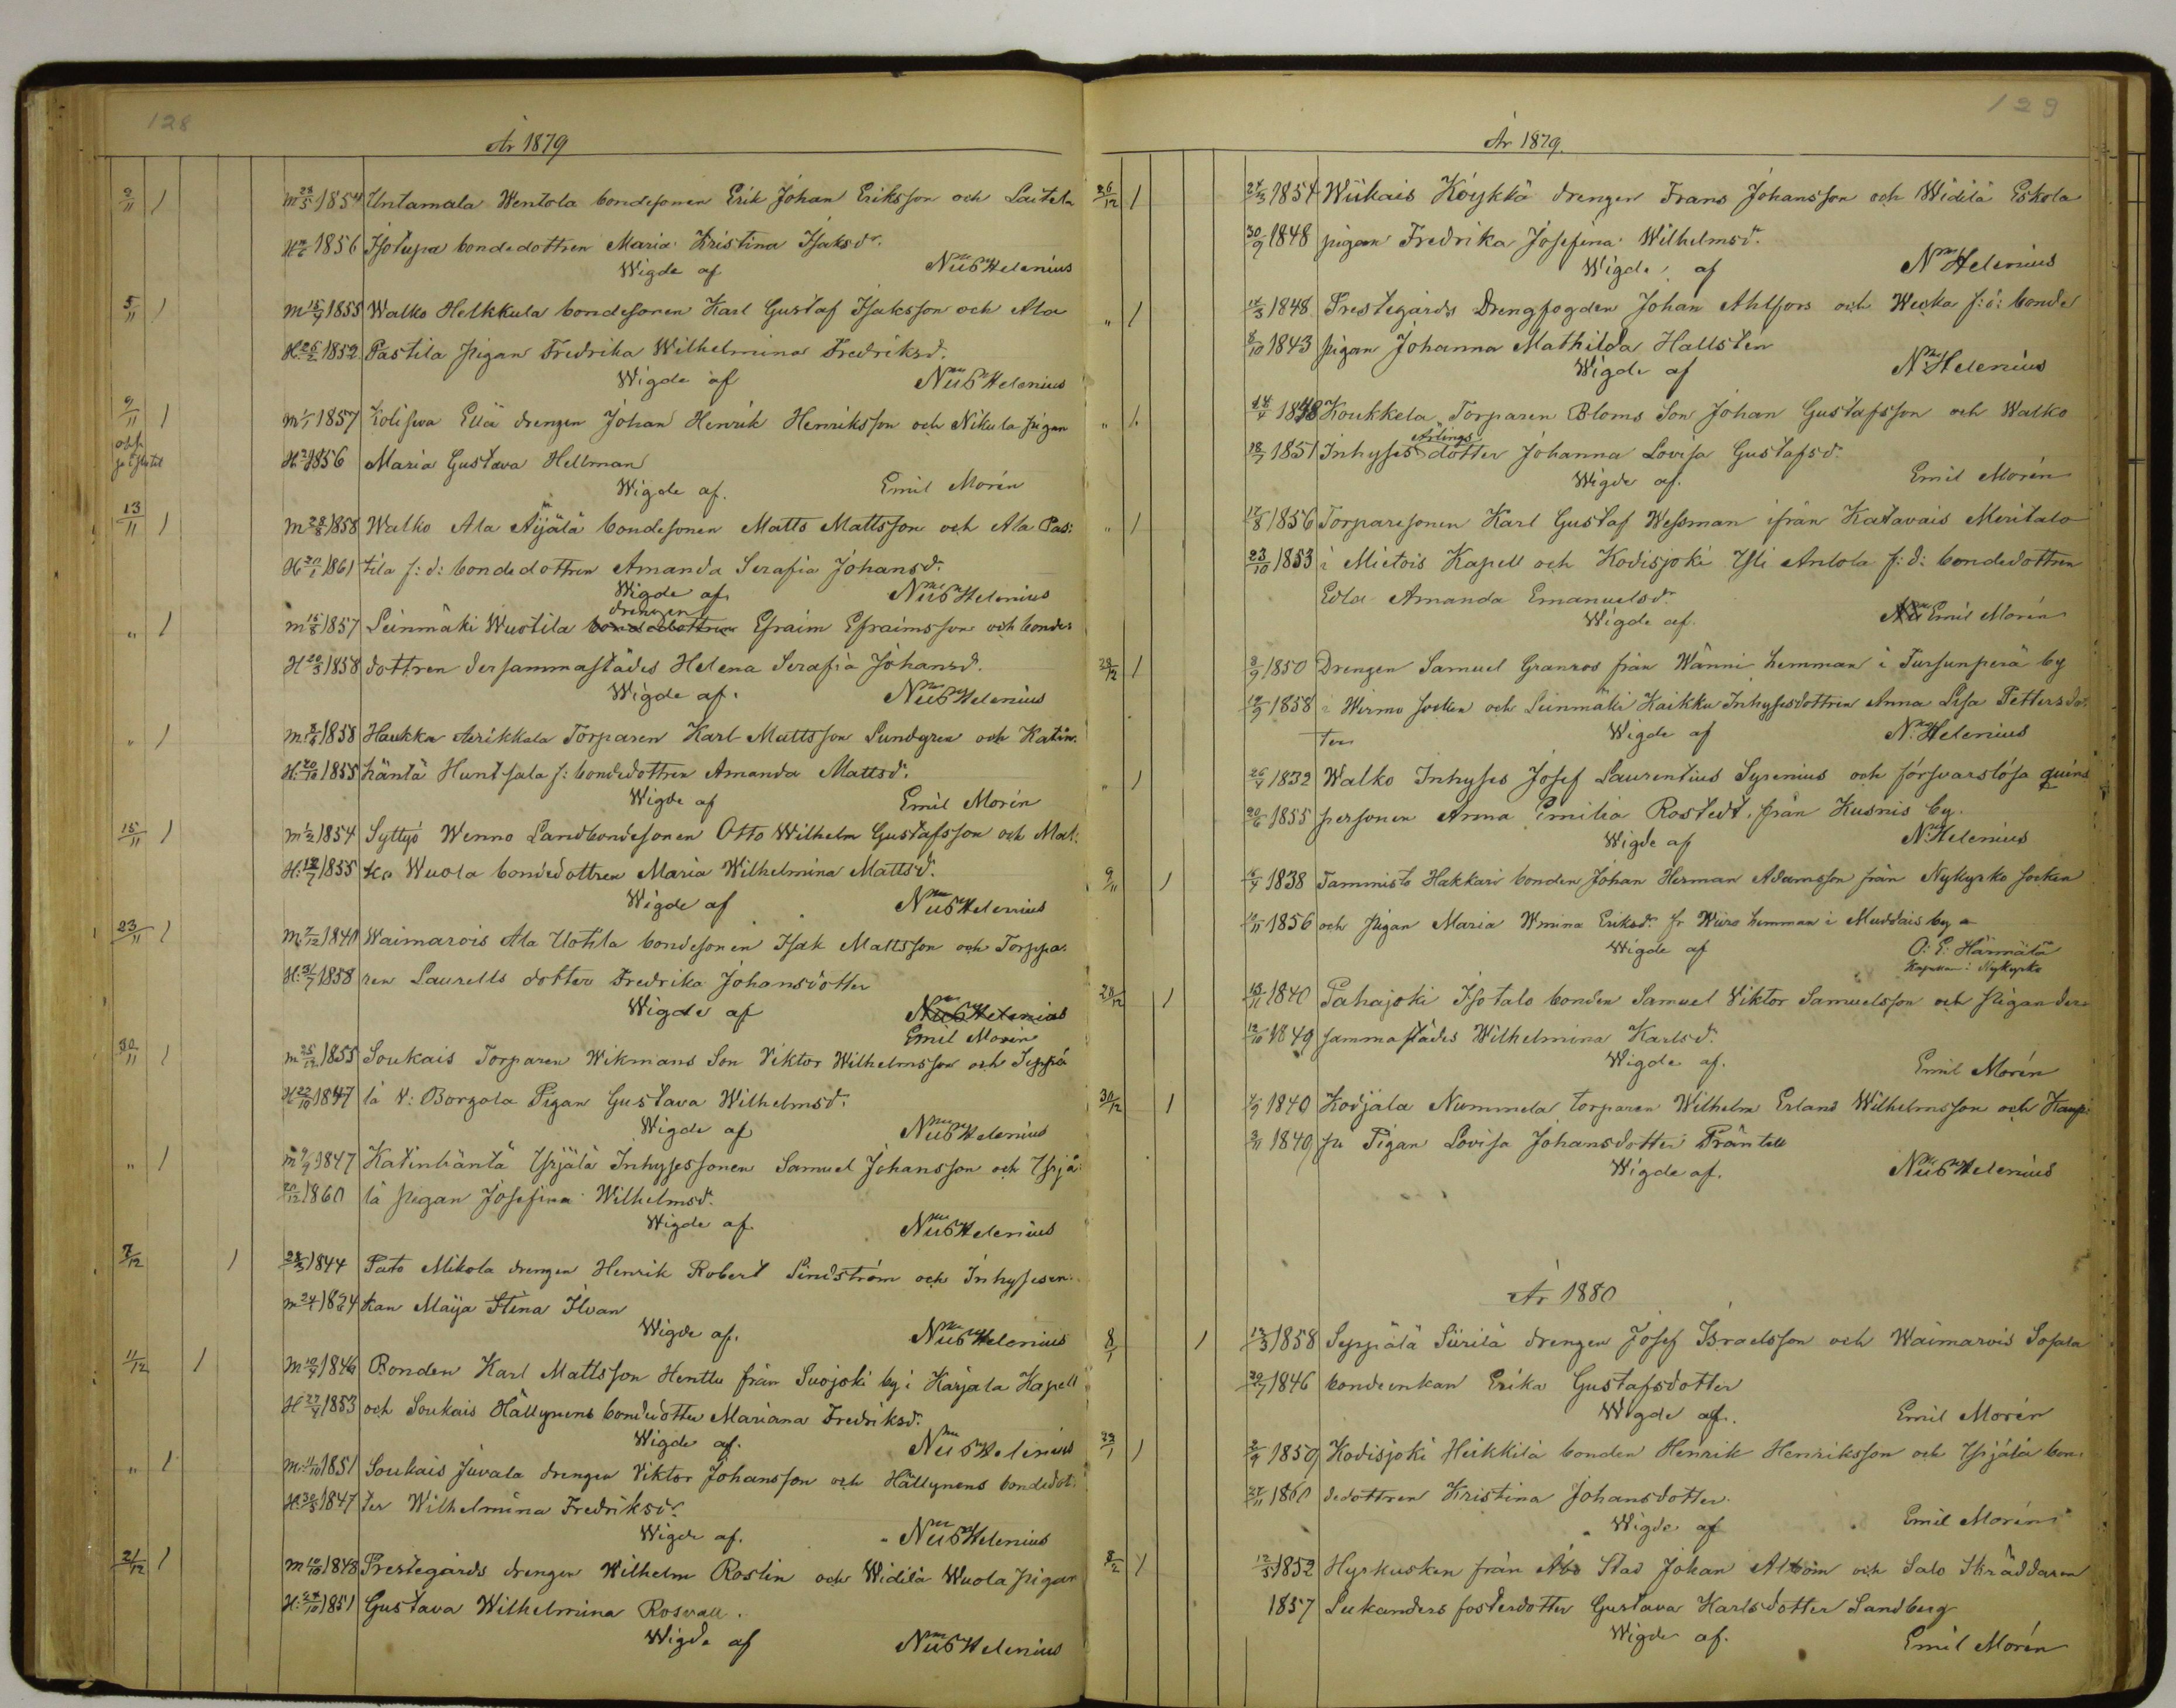 128
År 1879
2/11 1 m 23/5 1854 Untamala Wentola bondesonen Erik Johan Eriksson och Laitela
H 1856 Isotupa bondedottren Maria Kristina Isaksd:r
Wigde af Helenius
5/11 1 m 15/7 1855 Walko Helkkula bondesonen Karl Gustaf Isaksson och Ala
H 26/2 1852 Pastila pigan Fredrika Wilhelmina Fredriksd.
Wigde af Helenius
9/11 1 m 1/1 1857 Kolisuva Eliä drengen Johan Henrik Henriksson och Nikula pigan
H 1856 Maria Gustava Hellman
Wigde af. Emil Morén
13/11 1 m 28/8 1858 Walko Ala Äijälä bondesonen Matts Mattsson och Ala Pas:
H 20/1 1861 tila f: d: bondedottren Amanda Serafia Johansd:
Wigde af Helenius
drengen
" 1 m 15/8 1857 Leinmäki Wuotila bondedottren Efraim Efraimsson och bonde:
H 20/3 1858 dottren dersammastädes Helena Serafia Johansd.
Wigde af. Helenius
" 1 m 1858 Haukka Aerikkala Torparen Karl Mattsson Lundgren och Katin:
H: 20/10 1855 häntä Huntsala f: bondedottren Amanda Mattsd.
Wigde af Emil Morén
15/11 1 m 1/2 1854 Syttyö Wenno Landbondesonen Otto Wilhelm Gustafsson och Mal:
H: 12/7 1855 ko Wuola bondedottren Maria Wilhelmina Mattsd.
Wigde af Helenius
23/11 1 m 7/12 1840 Waimarois Ala Uotila bondesonen Isak Mattsson och Torppa:
H: 31/7 1858 ren Laurells dotter Fredrika Johansdotter
Wigde af Helenius
Emil Morén
30/11 1 m 25/12 1855 Soukais Torparen Wikmans Son Viktor Wilhelmsson och Seppä
H 22/10 1847 lä V: Borgola Pigan Gustava Wilhelmsd:
Wigde af Helenius
" 1 m 9/9 1847 Katinhäntä Yrjälä Inhysessonen Samuel Johansson och Yrjä:
20/12 1860 lä pigan Josefina Wilhelmsd.
Wigde af. Helenius
7/12 1 28/3 1844 Pato Mikola drengen Henrik Robert Lindström och Inhysesen:
m 24/1 1824 kan Maija Stina Ilvan
Wigde af. Helenius
11/12 1 m 10/4 1846 Bonden Karl Mattsson Henttu från Suojoki by i Karjala Kapell
H 27/4 1853 och Soukais Hällynens bondedotter Mariana Fredriksd:
Wigde af. Helenius
" 1 m: 11/10 1851 Soukais Juvala drengen Viktor Johansson och Hällynens bondedot:
H: 30/5 1847 ter Wilhelmina Fredriksd:r
Wigde af. Helenius
21/12 1 m 10/10 1848 Prestegårds drengen Wilhelm Roslin och Widilä Wuola pigan
H: 24/10 1851 Gustava Wilhelmina Rosvall.
Wigde af Helenius
129
År 1879.
26/12 1 24/3 1854 Wiikais Köykkä drengen Frans Johansson och Widilä Eskola
30/9 1848 pigan Fredrika Josefina Wilhelmsd:r
Wigde af N Helenius
" 1 14/3 1848 Prestegårds Drengfogden Johan Ahlfors och Wecka f: d: bonde
8/10 1843 pigan Johanna Mathilda Hallsten
Wigde af N Helenius
" 1. 14/4 1848 Koukkela Torparen Bloms Son Johan Gustafsson och Walko
Ärlings
28/7 1851 Inhyses dotter Johanna Lovisa Gustafsd.
Wigde af. Emil Morén
" 1 17/8 1856 Torparesonen Karl Gustaf Wessman ifrån Katavais Meritalo
23/10 1853 i Mietois Kapell och Kodisjoki Yli Antola f: d: bondedottren
Edla Amanda Emanuelsd:r
Wigde af. Emil Morén
28/12 1 8/9 1850 Drengen Samuel Granroos från Wänni hemman i Tursunperä by
19/9 1858 i Wirmo socken och Leinmäki Kaikku Inhysesdottren Anna Lisa Pettersdot:
ter Wigde af N. Helenius
" 1 26/4 1832 Walko Inhyses Josef Laurentius Syrenius och försvarslösa quins
20/6 1855 personen Anna Emilia Rostedt från Kusnis by.
Wigde af N. Helenius
9/11 1 1838 Tammisto Hakkari bonden Johan Herman Adamsson från Nykyrko socken
10/11 1856 och Pigan Maria Wmina Eriksd: fr Wiiro hemman i Muddais by
Wigde af O: E: Härmälä
Kapellan i Nykyrko
28/12 1 13/11 1840 Pahajoki Isotalo bonden Samuel Viktor Samuelsson och Pigan der:
12/10 1849 sammastädes Wilhelmina Karlsd:
Wigde af. Emil Morén
30/12 1 1/9 1840 Kodjala Nummela torparen Wilhelm Erland Wilhelmsson och Kaup:
3/11 1840 pu Pigan Lovisa Johansdotter Präntell
Wigde af. Helenius
År 1880
8/1 1 13/3 1858 Seppälä Siirilä drengen Josef Israelsson och Waimarois Sopala
20/7 1846 bondeenkan Erika Gustafsdotter
Wigde af. Emil Morén
23/1 1 2/9 1859 Kodisjoki Heikkilä bonden Henrik Henriksson och Yrjälä bon:
27/11 1860 dedottren Kristina Johansdotter.
Wigde af Emil Morén
8/2 1 12/5 1852 Hyrkusken från Åbo Stad Johan Alström och Salo Skräddaren
1857 Lukanders fosterdotter Gustava Karlsdotter Sandberg
Wigde af. Emil Morén